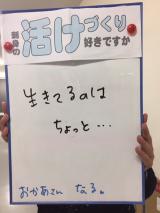 刺身の活けづくり
好きですか
生きてるのは
ちょっと…
おかあさん なる。